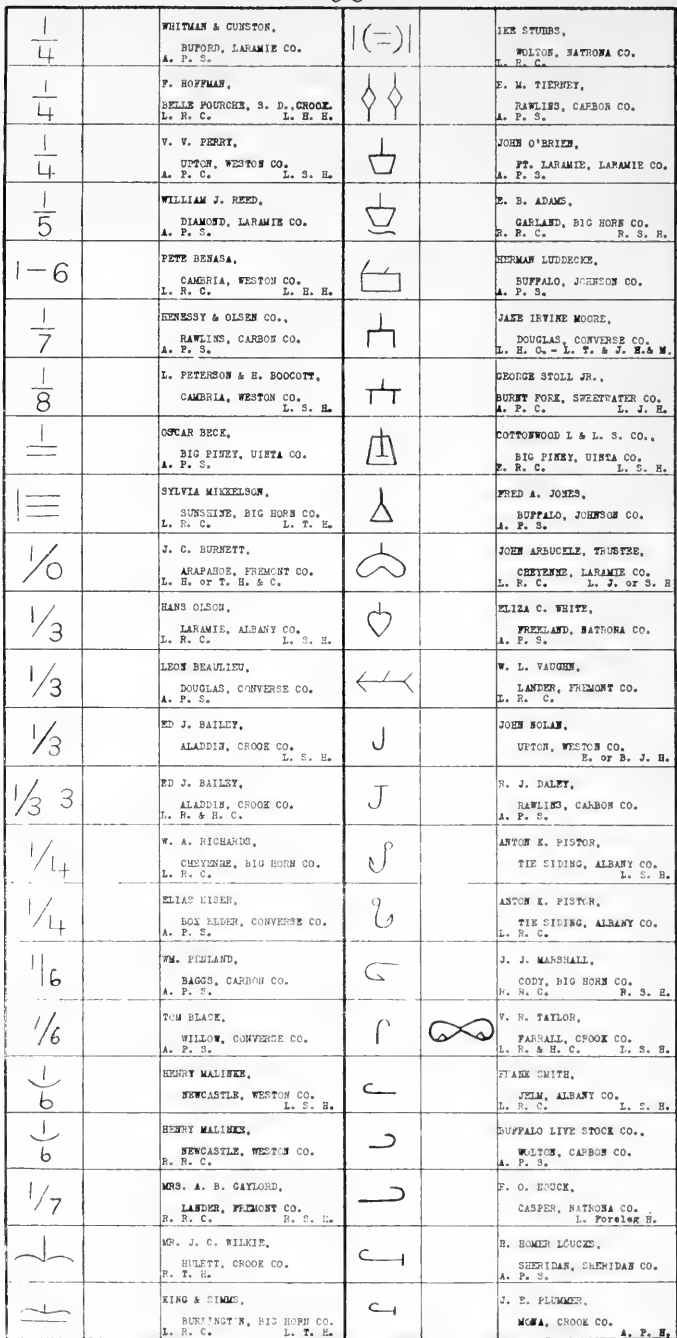 1/4
WHITMAN & GUNSTON,
BUFORD, LARAMIE CO.
A. P. S.
1/4
F. HOFFMAN,
BELLE FOURCHE, S. D., CROOK.
L. R. C. L. H. H.
1/4
V. V. PERRY,
UPTON, WESTON CO.
A. P. C. L. S. H.
1/5
WILLIAM J. REED,
DIAMOND, LARAMIE CO.
A. P. S.
1-6
PETE BENASA,
CAMBRIA, WESTON CO.
L. R. C. L. H. H.
1/7
HENESSY & OLSEN CO.,
RAWLINS, CARBON CO.
A. P. S.
1/8
L. PETERSON & H. BOOCOTT,
CAMBRIA, WESTON CO.
L. S. H.
OSCAR BECK,
BIG PINEY, UINTA CO.
A. P. S.
SYLVIA MIKKELSON,
SUNSHINE, BIG HORN CO.
L. R. C. L. T. H.
1/0
J. C. BURNETT,
ARAPAHOE, FREMONT CO.
L. H. or T. H. & C.
1/3
HANS OLSON,
LARAMIE, ALBANY CO.
L. R. C. L. S. H.
1/3
LEON BEAULIEU,
DOUGLAS, CONVERSE CO.
A. P. S.
1/3
ED J. BAILEY,
ALADDIN, CROOK CO.
L. S. H.
1/3 3
ED J. BAILEY,
ALADDIN, CROOK CO.
L. R. & H. C.
1/4
W. A. RICHARDS,
CHEYENNE, BIG HORN CO.
L. R. C.
1/4
ELIAS KISER,
BOX ELDER, CONVERSE CO.
A. P. S.
1/6
WM. PENLAND,
BAGGS, CARBON CO.
A. P. S.
1/6
TOM BLACK,
WILLOW, CONVERSE CO.
A. P. S.
1/6
HENRY MALINKE,
NEWCASTLE, WESTON CO.
L. S. H.
1/6
HENRY MALINKE,
NEWCASTLE, WESTON CO.
R. R. C.
1/7
MRS. A. B. GAYLORD,
LANDER, FREMONT CO.
R. R. C. R. S. H.
MR. J. C. WILKIE,
HULETT, CROOK CO.
R. T. H.
KING & SIMMS,
BURLINGTON, BIG HORN CO.
L. R. C. L. T. H.
|(=)|
IKE STUBBS,
WOLTON, NATRONA CO.
L. R. C.
E. M. TIERNEY,
RAWLINS, CARBON CO.
A. P. S.
JOHN O'BRIEN,
FT. LARAMIE, LARAMIE CO.
A. P. S.
E. B. ADAMS,
GARLAND, BIG HORN CO.
R. R. C. R. S. H.
HERMAN LUDDECKE,
BUFFALO, JOHNSON CO.
A. P. S.
JANE IRVINE MOORE,
DOUGLAS, CONVERSE CO.
L. H. C. - L. T. & J. H. & M.
GEORGE STOLL JR.,
BURNT FORK, SWEETWATER CO.
A. P. C. L. J. H.
COTTONWOOD L & L. S. CO.,
BIG PINEY, UINTA CO.
E. R. C. L. S. H.
FRED A. JONES,
BUFFALO, JOHNSON CO.
A. P. S.
JOHN ARBUCKLE, TRUSTEE,
CHEYENNE, LARAMIE CO.
L. R. C. L. J. or S. H
ELIZA C. WHITE,
FREELAND, NATRONA CO.
A. P. S.
W. L. VAUGHN,
LANDER, FREMONT CO.
L. R. C.
J
JOHN NOLAN,
UPTON, WESTON CO.
E. or B. J. H.
J
R. J. DALEY,
RAWLINS, CARBON CO.
A. P. S.
ANTON K. PISTOR,
TIE SIDING, ALBANY CO.
L. S. H.
ANTON K. PISTOR,
TIE SIDING, ALBANY CO.
L. R. C.
J. J. MARSHALL,
CODY, BIG HORN CO.
R. R. C. R. S. H.
V. R. TAYLOR,
FARRALL, CROOK CO.
L. R. & H. C. L. S. H.
FRANK SMITH,
JELM, ALBANY CO.
L. R. C. L. S. H.
BUFFALO LIVE STOCK CO.,
WOLTON, CARBON CO.
A. P. S.
F. O. HOUCK,
CASPER, NATRONA CO.
L. Foreleg H.
H. HOMER LOUCKS,
SHERIDAN, SHERIDAN CO.
A. P. S.
J. E. PLUMMER,
MONA, CROOK CO.
A. P. H,